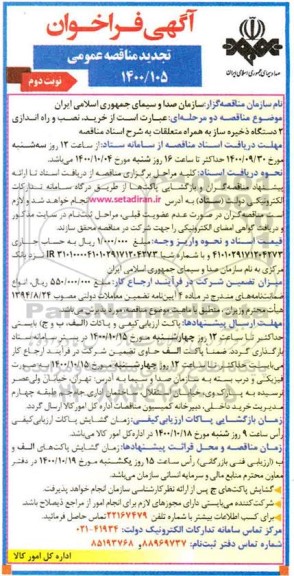 آگهی فراخوان
تجدید مناقصه عمومی
۱۴۰۰/۱۰۵
نوبت دوم
صدا و سیمای جمهوری اسلامی ایران
نام سازمان مناقصه‌گزار: سازمان صدا و سیمای جمهوری اسلامی ایران
موضوع مناقصه دو مرحله‌ای: عبارت است از خرید، نصب و راه اندازی
۲ دستگاه ذخیره ساز به همراه متعلقات به شرح اسناد مناقصه
مهلت دریافت اسناد مناقصه از سامانه ستاد: از ساعت ۱۲ روز سه‌شنبه
مورخ ۱۴۰۰/۰۹/۳۰ حداکثر تا ساعت ۱۶ روز شنبه مورخ ۱۴۰۰/۱۰/۰۴
نحوه دریافت اسناد: کلیه مراحل برگزاری مناقصه از دریافت اسناد تا ارائه
پیشنهاد مناقصه‌گران و بازگشایی پاکت‌ها از طریق درگاه سامانه تدارکات
الکترونیکی دولت (ستاد) به آدرس www.setadiran.ir انجام خواهد شد و لازم
است مناقصه‌گران در صورت عدم عضویت قبلی، مراحل ثبت‌نام در سایت مذکور
و دریافت گواهی امضای الکترونیکی را جهت شرکت در مناقصه محقق سازند.
قیمت اسناد و نحوه واریز وجه: مبلغ ۱/۰۰۰/۰۰۰ ریال به حساب جاری
مرکزی به نام سازمان صدا و سیمای جمهوری اسلامی ایران
میزان تضمین شرکت در فرآیند ارجاع کار: مبلغ ۵۵۰/۰۰۰/۰۰۰ ریال، انواع
ضمانتنامه‌های مندرج در ماده ۴ آیین‌نامه تضمین معاملات دولتی مصوب ۱۳۹۴/۸/۲۴
مهلت ارسال پیشنهادها: پاکت ارزیابی کیفی و پاکات (الف، ب و ج) بایستی
حداکثر تا ساعت ۱۲ روز چهارشنبه مورخ ۱۴۰۰/۱۰/۱۵ در بستر سامانه ستاد
بارگذاری گردد. ضمناً پاکت الف حاوی تضمین شرکت در فرآیند ارجاع کار
می‌بایست حداکثر تا ساعت ۱۲ روز چهارشنبه مورخ ۱۴۰۰/۱۰/۱۵ به صورت
فیزیکی و درب بسته به نشانی
مدیریت خرید داخلی، دبیرخانه کمیسیون مناقصات اداره کل امور کالا ارسال گردد.
زمان بازگشایی پاکات ارزیابی کیفی: زمان گشایش پاکات ارزیابی کیفی
رأس ساعت ۹ روز شنبه مورخ ۱۴۰۰/۱۰/۱۸ در اداره کل امور کالا می‌باشد.
زمان مناقصه و محل قرائت پیشنهادها: زمان گشایش پاکت‌های الف و
ب (ارزیابی فنی بازرگانی)، رأس ساعت ۱۵ روز یکشنبه مورخ ۱۴۰۰/۱۰/۱۹ در دفتر
معاون محترم منابع مالی و سرمایه انسانی سازمان می‌باشد.
گشایش پاکت‌های ج پس از ارائه نظر کارشناسی سازمان انجام خواهد پذیرفت.
شرکت‌کننده می‌بایستی دارای مجوزهای لازم برای انجام امور از مراجع ذیصلاح باشد.
برای کسب اطلاعات بیشتر با شماره تلفن ۲۲۱۶۷۴۷۹ تماس حاصل فرمائید.
مرکز تماس سامانه تدارکات الکترونیک دولت: ۴۱۹۳۴-۰۲۱
شماره تماس دفتر ثبت‌نام: ۸۸۹۶۹۷۳۷ و ۸۵۱۹۳۷۶۸
اداره کل امور کالا